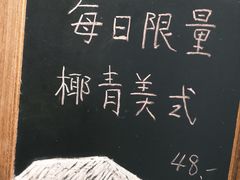 每日限量
椰青美式
48.-